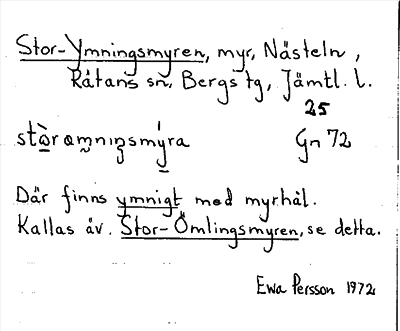 Stor-Ymningsmyren, myr, Nästeln,
Rätans sn, Bergs tg, Jämtl. l.
25
Gn 72
Där finns ymnigt med myrhål.
Kallas äv. Stor-Ömlingsmyren, se detta.
Ewa Persson 1972